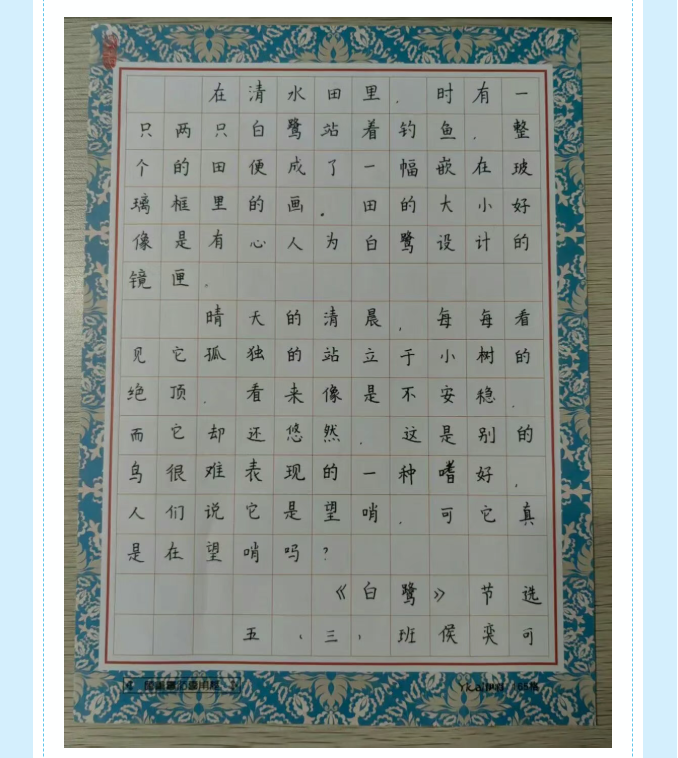 在清水田里，时有一
只两只白鹭站着钓鱼，整
个的田便成了一幅嵌在玻
璃框里的画。田的大小好
像是有心人为白鹭设计的
镜匣。
晴天的清晨，每每看
见它孤独的站立于小树的
绝顶，看来像是不安稳，
而它却还悠然，这是别的
鸟很难表现的一种嗜好，
人们说它是望哨，可它真
是在望哨吗？
《白鹭》节选
五（三）班侯奕可